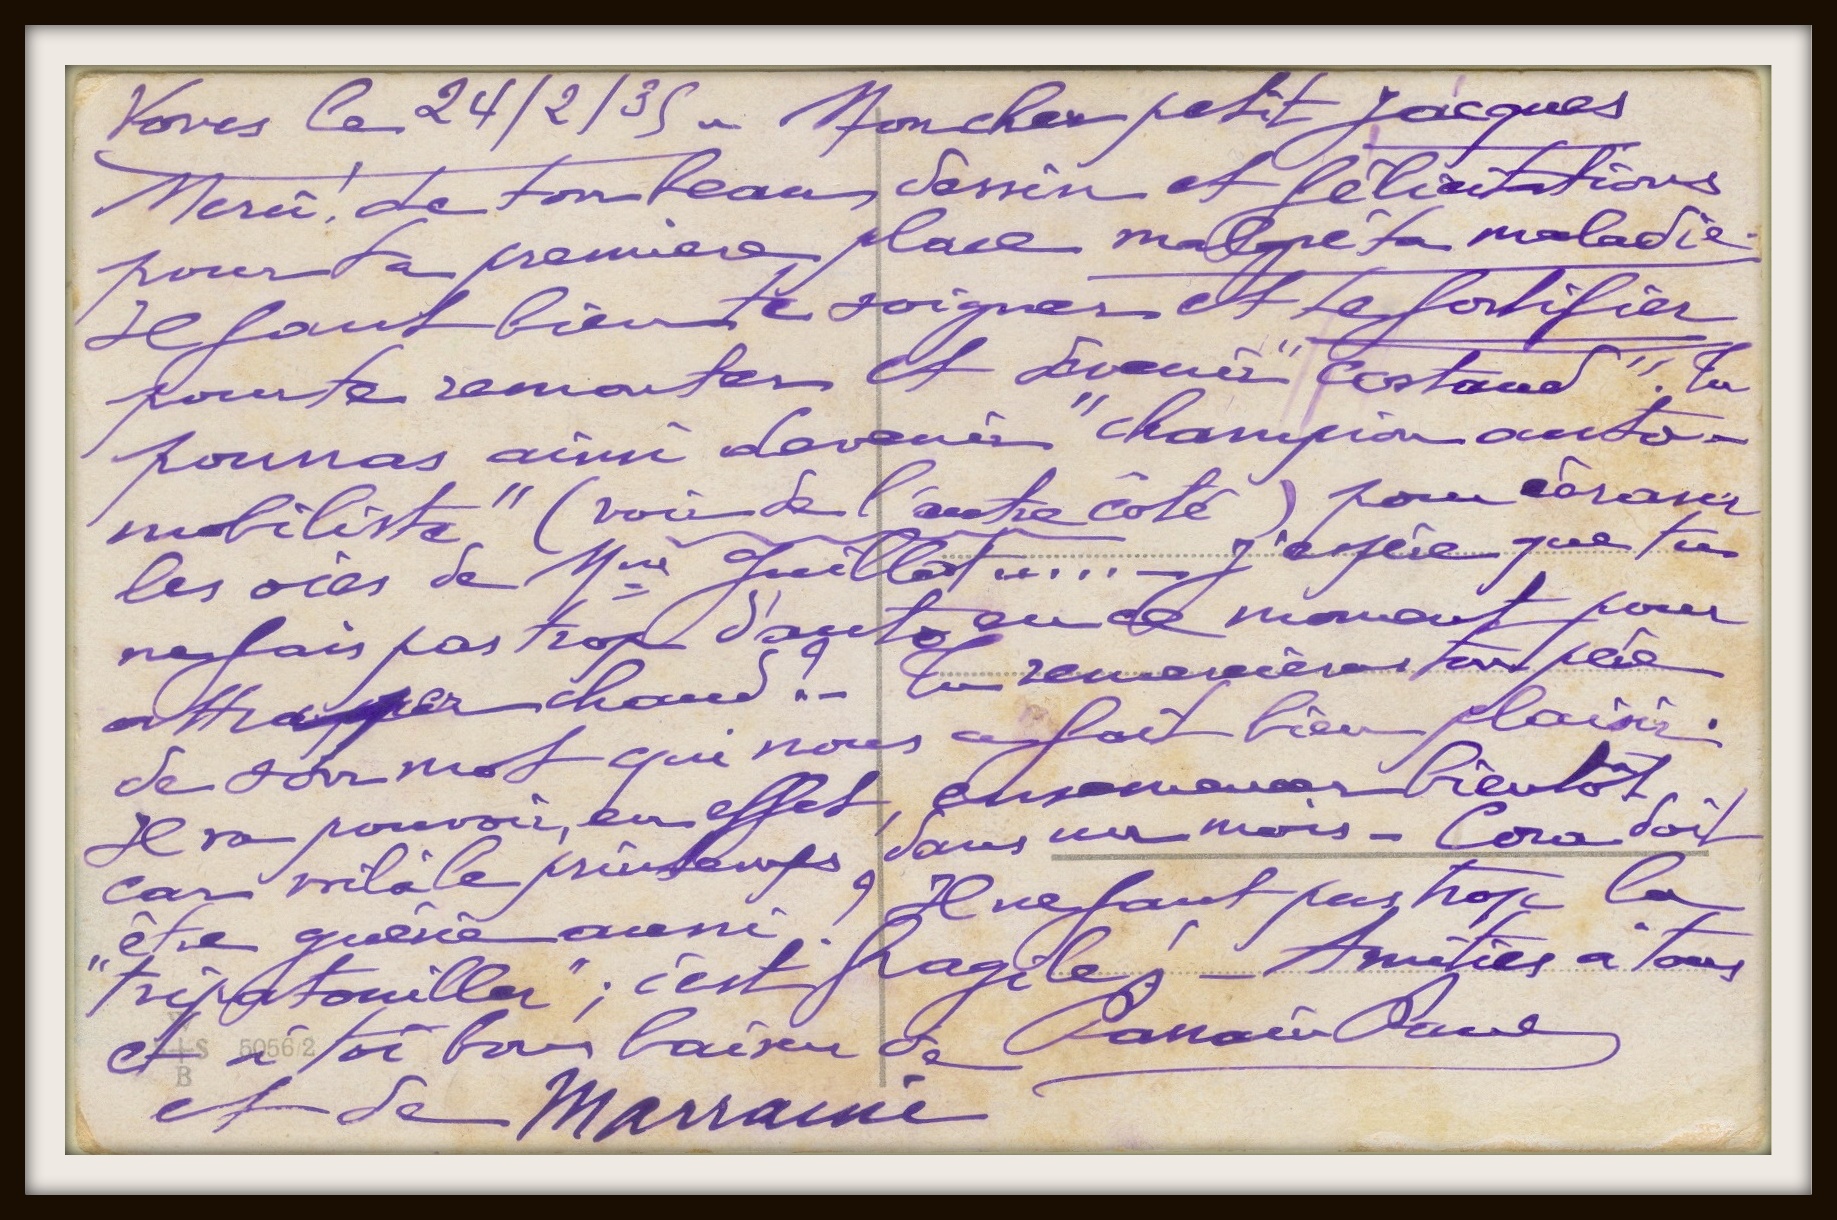 Voves le 24/2/35 – Mon cher petit Jacques
Merci! de ton beau dessin et félicitations
pour ta premiere place malgré ta maladie.
Il faut bien te soigner et te fortifier
pour te remonter et devenir "costaud". Tu
pourras ainsi devenir "champion auto-
mobiliste" (voir de l'autre côté) pour écraser
les oies de Mme Guillot..... – J'espère que tu
ne fais pas trop d'auto en ce moment pour
attrapper chaud? – Tu remercieras ton père
de son mot qui nous a fait bien plaisir.
Il va pouvoir, en effet, ensemencer bientôt
car voilà le printemps, dans un mois – Cora doit
être guérie aussi? Il ne faut pas trop la
"tripatouiller"; c'est fragile! – Amitiés à tous
et à toi bons baisers de Parrain Paul
et de Marraine
W
S 5056/2
B